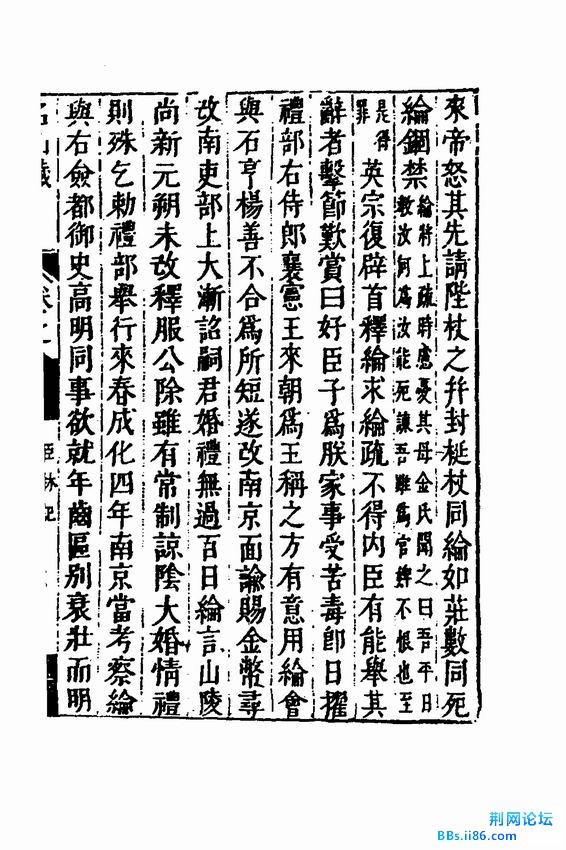 來帝怒其先請陛杖之幷封梃杖同綸如莊數同死
綸錮禁綸將上疏時慮憂其母金氏聞之曰吾平日
教汝何爲汝能死諫吾雖爲官婢不恨也至
是得
罪
英宗復辟首釋綸求綸疏不得内臣有能舉其
辭者擊節歎賞曰好臣子爲朕家事受苦毒卽日擢
禮部右侍郎襄憲王來朝爲王稱之方有意用綸會
與石亨楊善不合爲所短遂改南京面諭賜金幣尋
改南吏部上大漸詔嗣君婚禮無過百日綸言山陵
尚新元朔未改釋服公除雖有常制諒陰大婚情禮
則殊乞勅禮部舉行來春成化四年南京當考察綸
與右僉都御史高明同事欲就年齒區別衰壯而明
名山藏
臣林記
荆网论坛
BBs.ii86.com